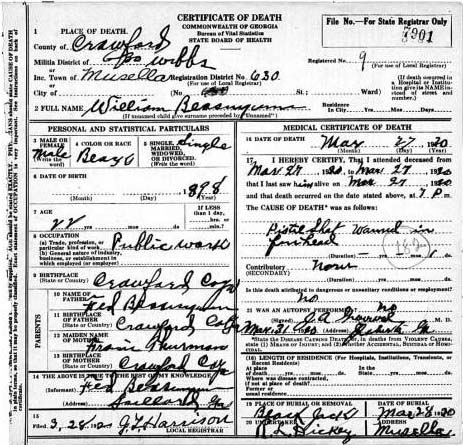 CERTIFICATE OF DEATH
COMMONWEALTH OF GEORGIA
Bureau of Vital Statistics
STATE BOARD OF HEALTH
File No.—For State Registrar Only
7901
1 PLACE OF DEATH.
County of Crawford
Militia District of Webbs
Registered No. 9
(For use of Local Registrar)
Inc. Town of Musella Registration District No. 630
(For use of Local Registrar)
City of (No. St.; Ward)
(If death occurred in a Hospital or Institution give its NAME instead of street and number.)
2 FULL NAME William
Residence In City Yrs. Mos. Days
(If unnamed child give surname preceded by "Unnamed")
PERSONAL AND STATISTICAL PARTICULARS
3 MALE OR FEMALE Male (Write the word)
4 COLOR OR RACE
5 SINGLE, MARRIED, WIDOWED, OR DIVORCED. (Write the word) Single
6 DATE OF BIRTH
1898
(Month) (Day) (Year)
7 AGE
22 yrs. mos. ds.
If LESS than 1 day, hrs. or min.
8 OCCUPATION
(a) Trade, profession, or particular kind of work.
(b) General nature of industry, business, or establishment in which employed (or employer)
Public work
9 BIRTHPLACE Crawford Co Ga
PARENTS
10 NAME OF FATHER
11 BIRTHPLACE OF FATHER Crawford Co Ga
12 MAIDEN NAME OF MOTHER Thurman
13 BIRTHPLACE OF MOTHER Crawford Co Ga
14 THE ABOVE IS TRUE TO THE BEST OF MY KNOWLEDGE
(Informant)
(Address) Gaillard Ga
15
3, 28 1920 J T Harrison
LOCAL REGISTRAR
MEDICAL CERTIFICATE OF DEATH
16 DATE OF DEATH
Mar 27 1920
(Month) (Day) (Year)
17 I HEREBY CERTIFY, That I attended deceased
from Mar 27 1920 to Mar 27 1920
that I last saw him alive on Mar 27 1920
and that death occurred on the date stated above, at 7 P.m.
The CAUSE OF DEATH* was as follows:
Pistol Shot Wound in
forehead
182
(Duration) yrs. mos. ds.
Contributory None
(SECONDARY)
(Duration) yrs. mos. ds.
Is this death attributed to dangerous or insanitary conditions of employment?
No
21 WAS AN AUTOPSY PERFORMED? No
(Signed) M. D.
Mar 31 1920 (Address) Roberta Ga
*State the DISEASE CAUSING DEATH, or, in deaths from VIOLENT CAUSES, state (1) MEANS OF INJURY; and (2) whether ACCIDENTAL, SUICIDAL or HOMICIDAL.
18 LENGTH OF RESIDENCE (For Hospitals, Institutions, Transients, or Recent Residents)
At place of death yrs. mos. ds. In the State yrs. mos. ds.
Where was disease contracted, if not at place of death?
Former or usual residence
19 PLACE OF BURIAL OR REMOVAL Black Jack
DATE OF BURIAL Mar 28 1920
20 UNDERTAKER Hickey
ADDRESS Musella